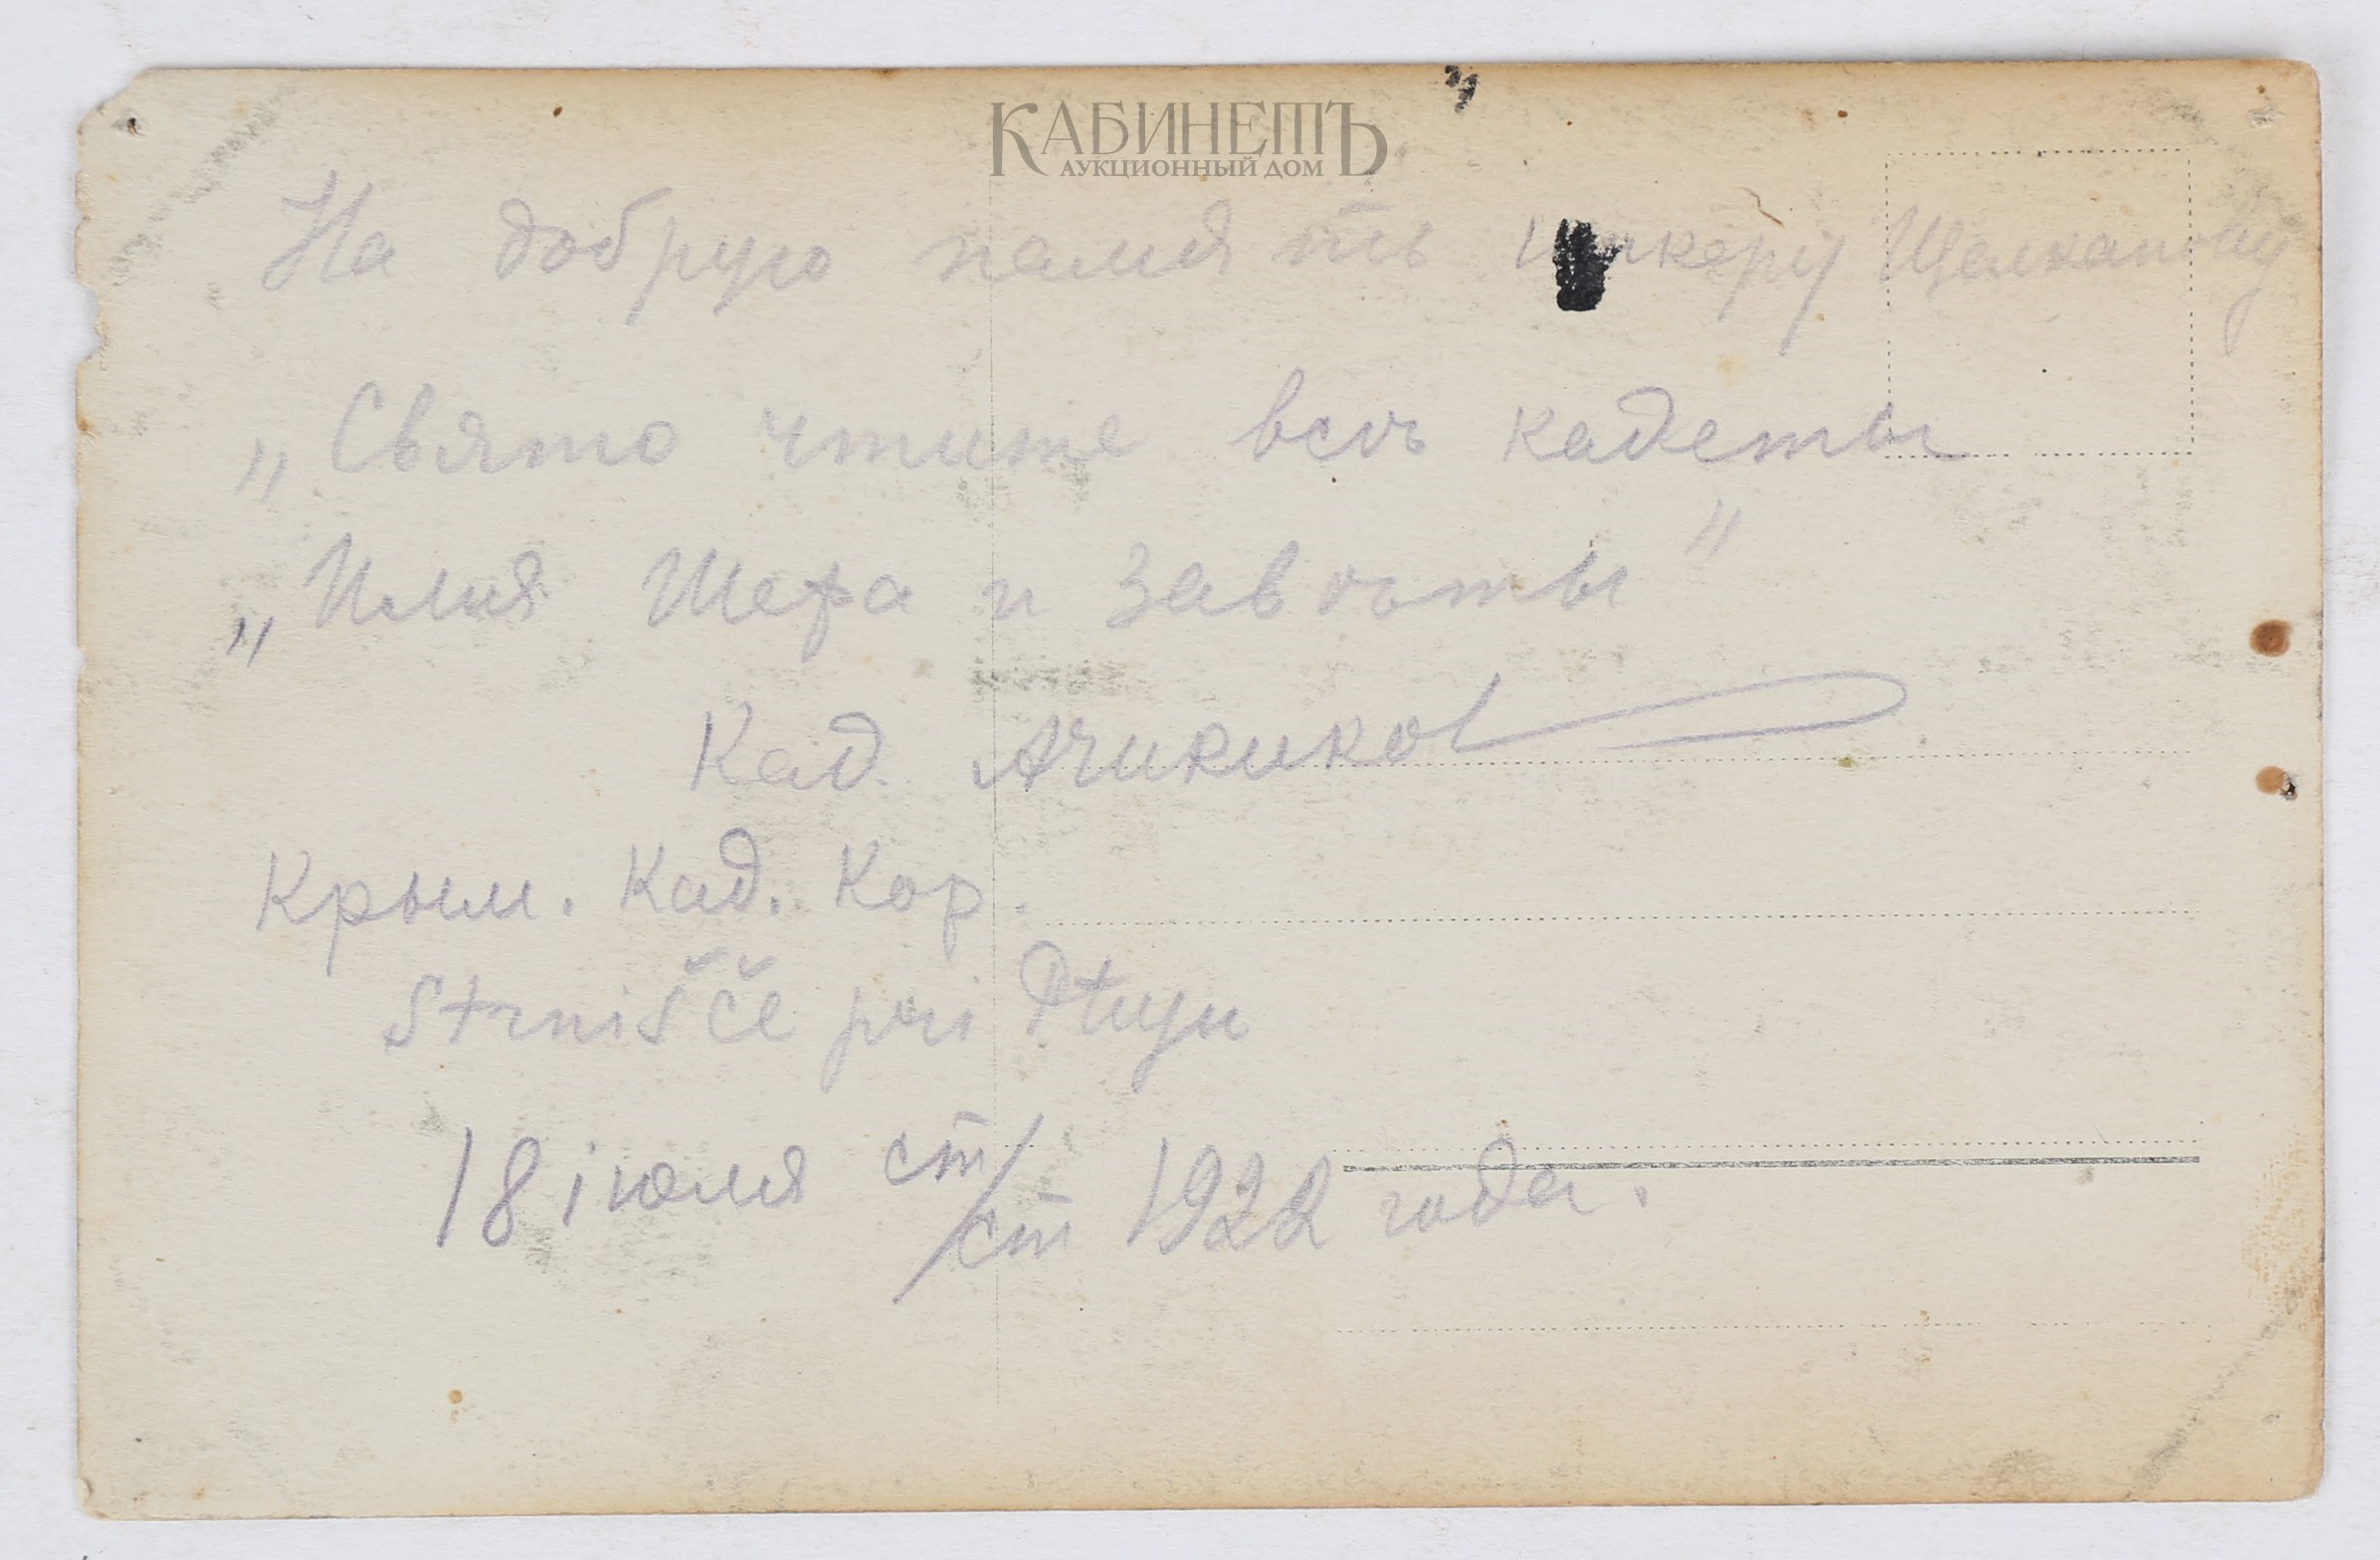 КАБИНЕТЪ
АУКЦИОННЫЙ ДОМ
На добрую память Щелканову
„Свято чтите всѣ кадеты
„Имя Шефа и завѣты"
Кад. Ачикиков
Крым. Кад. Кор.
Strnišče pri Ptuju
18 іюля ст/ст 1922 года.